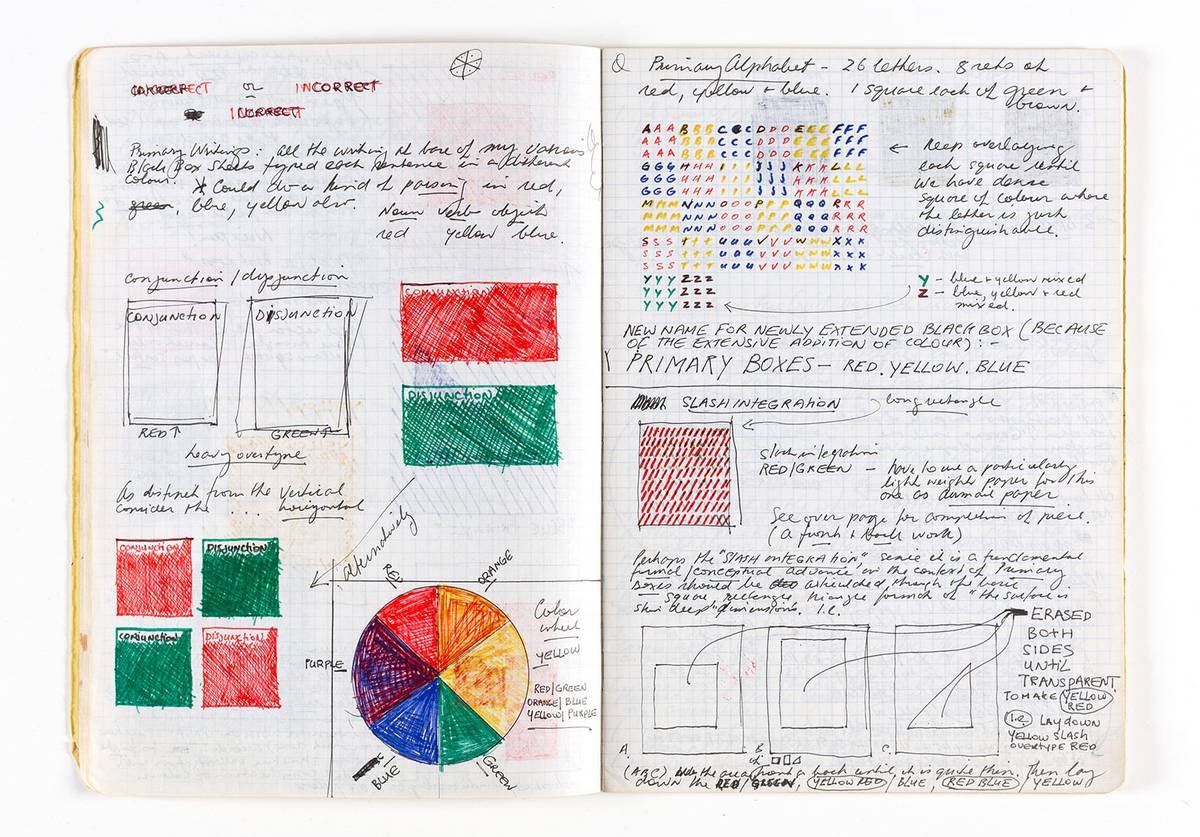 INCORRECT or INCORRECT
INCORRECT
Primary Writings: all the writing at base of my various
Black Box Sheets typed each sentence in a different
colour. * Could do a kind of parsing in red,
green, blue, yellow also.
Noun verb object
red yellow blue.
conjunction / dysjunction
CONJUNCTION DISJUNCTION
RED↑ GREEN↑
heavy overtype
CONJUNCTION
DISJUNCTION
As distinct from the vertical
consider the ... horizontal
CONJUNCTION DISJUNCTION
CONJUNCTION DISJUNCTION
alternatively
RED
ORANGE
PURPLE
BLUE
GREEN
Color
wheel
YELLOW
RED/GREEN
ORANGE/BLUE
YELLOW/PURPLE
Primary Alphabet - 26 letters. 8 reds of
red, yellow + blue. 1 square each of green +
brown.
A A A B B B C C C D D D E E E F F F
A A A B B B C C C D D D E E E F F F
A A A B B B C C C D D D E E E F F F
G G G H H H I I I J J J K K K L L L
G G G H H H I I I J J J K K K L L L
G G G H H H I I I J J J K K K L L L
M M M N N N O O O P P P Q Q Q R R R
M M M N N N O O O P P P Q Q Q R R R
M M M N N N O O O P P P Q Q Q R R R
S S S t t t u u u V V V W W W X X X
S S S t t t u u u V V V W W W X X X
S S S t t t u u u V V V W W W X X X
Y Y Y Z Z Z
Y Y Y Z Z Z
Y Y Y Z Z Z
← Keep overlaying
each square until
We have dense
square of colour where
the letter is just
distinguishable.
Y - blue + yellow mixed
Z - blue, yellow + red
mixed.
NEW NAME FOR NEWLY EXTENDED BLACK BOX (BECAUSE
OF THE EXTENSIVE ADDITION OF COLOUR):-
PRIMARY BOXES - RED. YELLOW. BLUE
SLASH INTEGRATION
long rectangle
slash integration
RED/GREEN - have to use a particularly
light weight paper for this
one as paper
See over page for completion of piece.
(a front + back work)
Perhaps the "SLASH INTEGRATION" since it is a fundamental
formal/conceptual advance in the context of Primary
Boxes should be articulated through of basic
- Square, rectangle, triangle format of "the surface is
skin deep" dimensions. I.E.
ERASED
BOTH
SIDES
UNTIL
TRANSPARENT
TO MAKE YELLOW
RED
I.E LAY DOWN
YELLOW SLASH
OVERTYPE RED
A. B. C.
(ABC) the area front + back until it is quite thin. Then lay
down the RED / GREEN, YELLOW RED / BLUE, RED BLUE / YELLOW